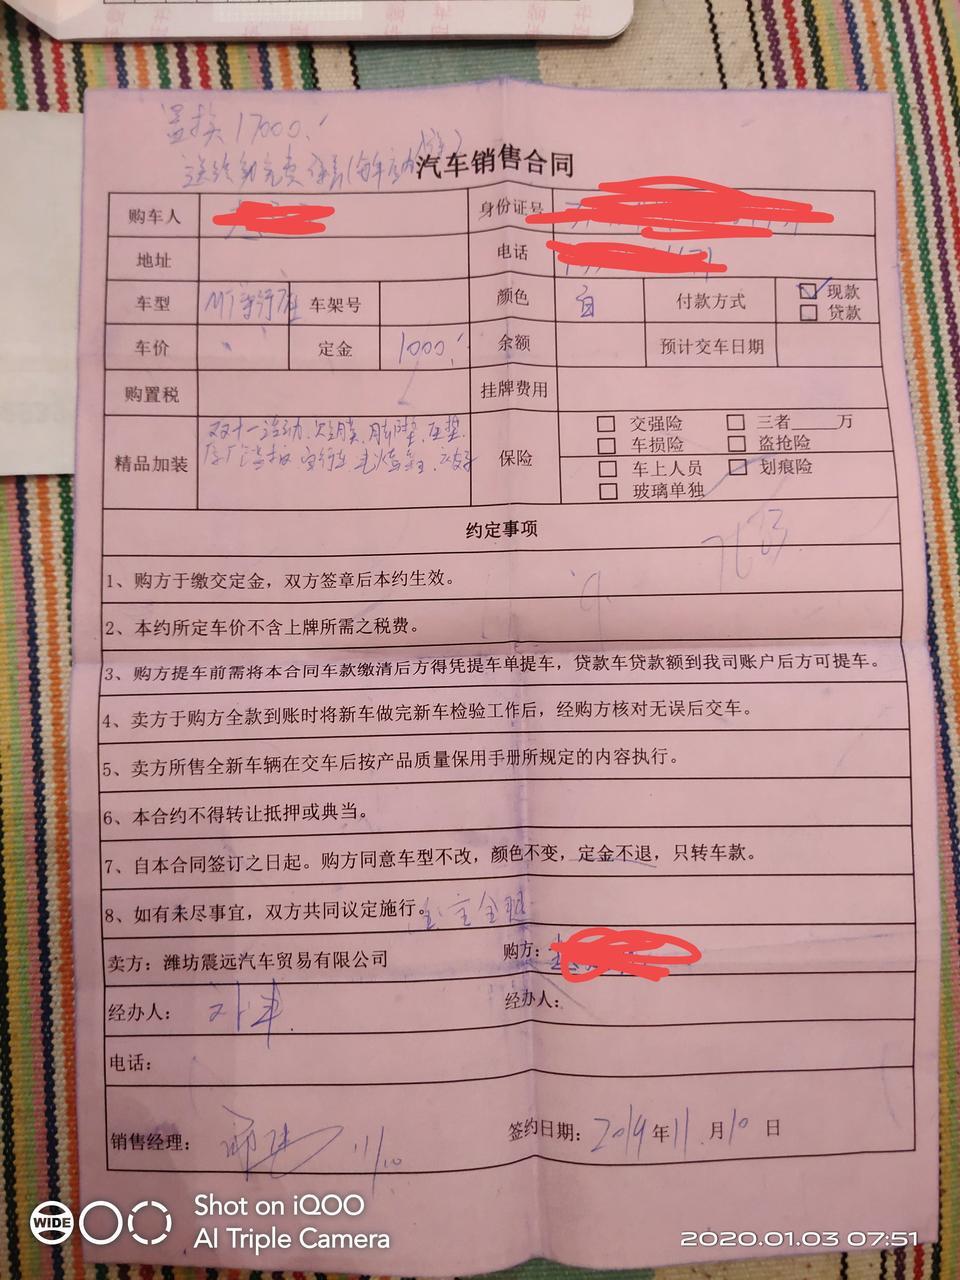 置换17000.
汽车销售合同
购车人 身份证号
地址 电话
车型 车架号 颜色 白 付款方式 现款
贷款
车价 定金 1000. 余额 预计交车日期
购置税 挂牌费用
精品加装 双十一活动. 脚垫. 保险 交强险 三者_____万
车损险 盗抢险
车上人员 划痕险
玻璃单独
约定事项
1、购方于缴交定金，双方签章后本约生效。
2、本约所定车价不含上牌所需之税费。
3、购方提车前需将本合同车款缴清后方得凭提车单提车，贷款车贷款额到我司账户后方可提车。
4、卖方于购方全款到账时将新车做完新车检验工作后，经购方核对无误后交车。
5、卖方所售全新车辆在交车后按产品质量保用手册所规定的内容执行。
6、本合约不得转让抵押或典当。
7、自本合同签订之日起。购方同意车型不改，颜色不变，定金不退，只转车款。
8、如有未尽事宜，双方共同议定施行。
卖方：潍坊震远汽车贸易有限公司 购方：
经办人： 经办人：
电话：
销售经理： 11/10 签约日期：2019年11月10日
WIDE
Shot on iQOO
AI Triple Camera
2020.01.03 07:51